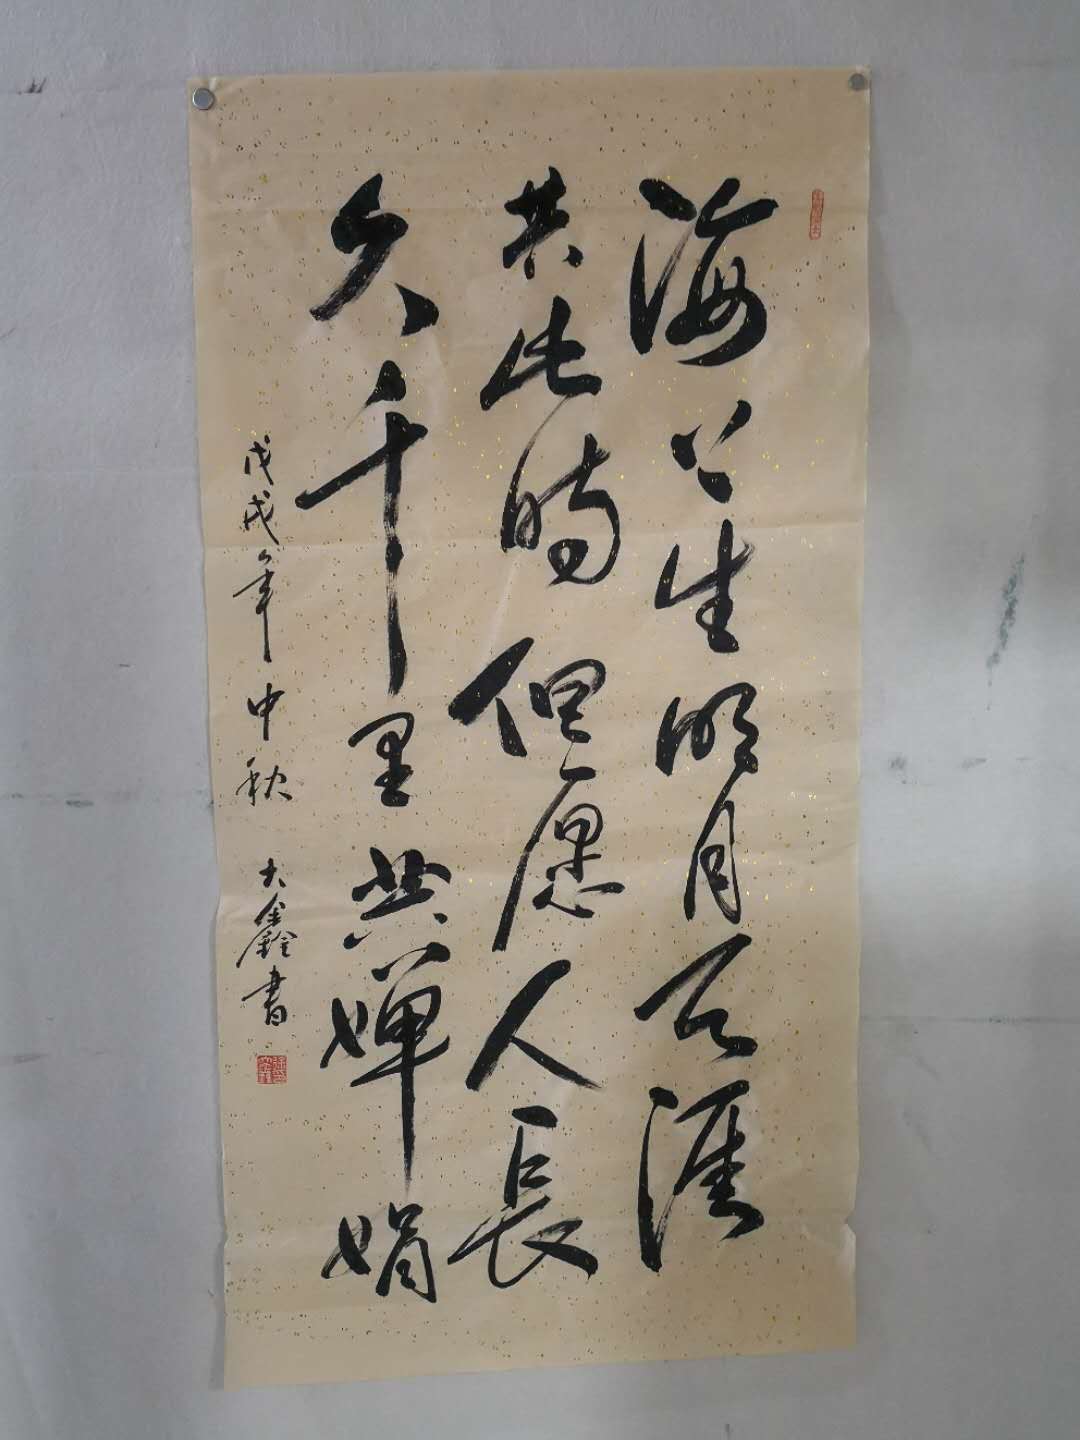 海上生明月天涯
共此時但愿人長
久千里共嬋娟
戊戌年中秋
大鑫銓書